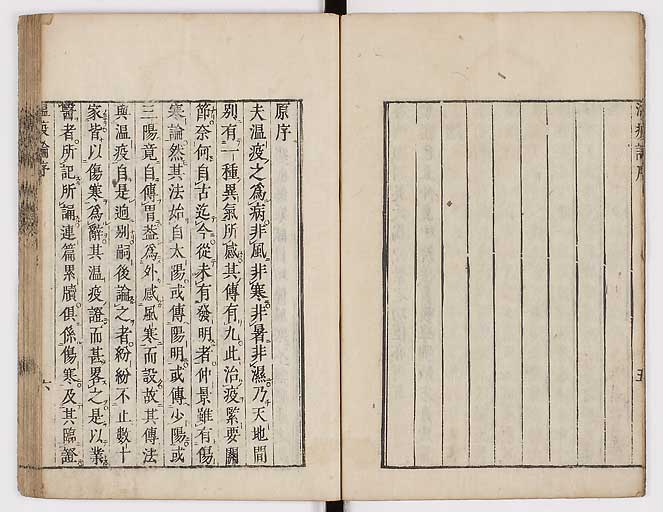 原序
夫温疫之爲病非風非寒非暑非濕乃天地間
別有一種異氣所感其傳有九此治疫緊要關
節奈何自古迄今從未有發明者仲景雖有傷
寒論然其法始自太陽或傳陽明或傳少陽或
三陽竟自傳胃葢爲外感風寒而設故其傳法
與温疫自是逈別嗣後論之者紛紛不止數十
家皆以傷寒爲辭其温疫證而甚畧之是以業
醫者所記所誦連篇累牘俱係傷寒及其臨證
温疫論序
六
五